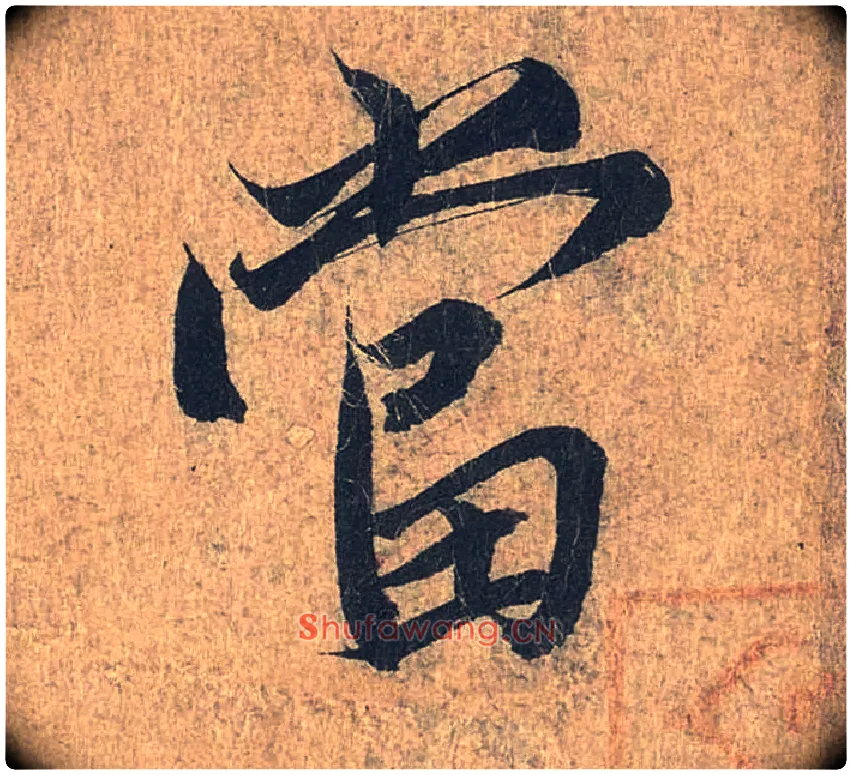 當
Shufawang.CN